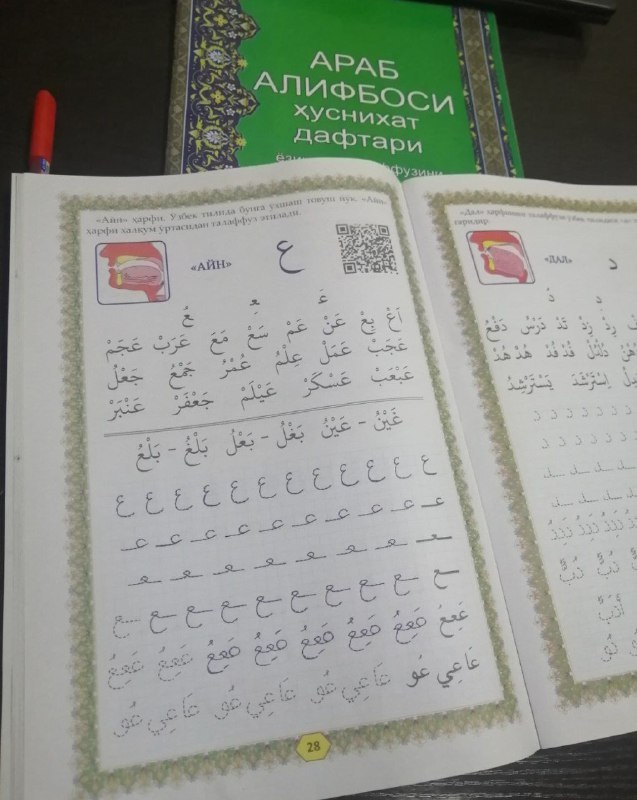 АРАБ
АЛИФБОСИ
ҳуснихат
дафтари
«Айн» ҳарфи. Ўзбек тилида бунга ўхшаш товуш йўқ. «Айн»
ҳарфи ҳалқум ўртасидан талаффуз этилади.
«АЙН» ع
عَ عِ عُ
اَعْ بِعْ عَنْ عَمْ سَعْ مَعَ عَرَبْ عَجَمْ
عَجَبْ عَمَلْ عِلْمُ عُمْرُ جَمْعُ جَعْلُ
عَبْعَبْ عَسْكَرْ عَيْلَمْ جَعْفَرْ عَنْبَرْ
غَيْنُ - عَيْنُ بَغْلُ - بَعْلُ بَلْغُ - بَلْعُ
ع ع ع ع ع ع ع ع ع ع
عـ عـ عـ عـ عـ عـ عـ عـ عـ
ـعـ ـعـ ـعـ ـعـ ـعـ ـعـ ـعـ ـعـ
ـع ـع ـع ـع ـع ـع ـع ـع ـع
عَعِعُ عَعِعُ عَعِعُ عَعِعُ عَعِعُ عَعِعُ عَعِعُ عَعِعُ
عَاعِي عُو عَاعِي عُو عَاعِي عُو عَاعِي عُو
28
«Дал» ҳарфининг талаффузи ўзбек тилидаги
«ДАЛ» د
دِ دُ
رِدْ زِدْ قَدْ دَرْسُ دَفْعُ
دُلْدُلُ فُدْفُدُ هُدْهُدُ
اِسْتَرْشَدَ يَسْتَرْشِدُ
د د د د د د